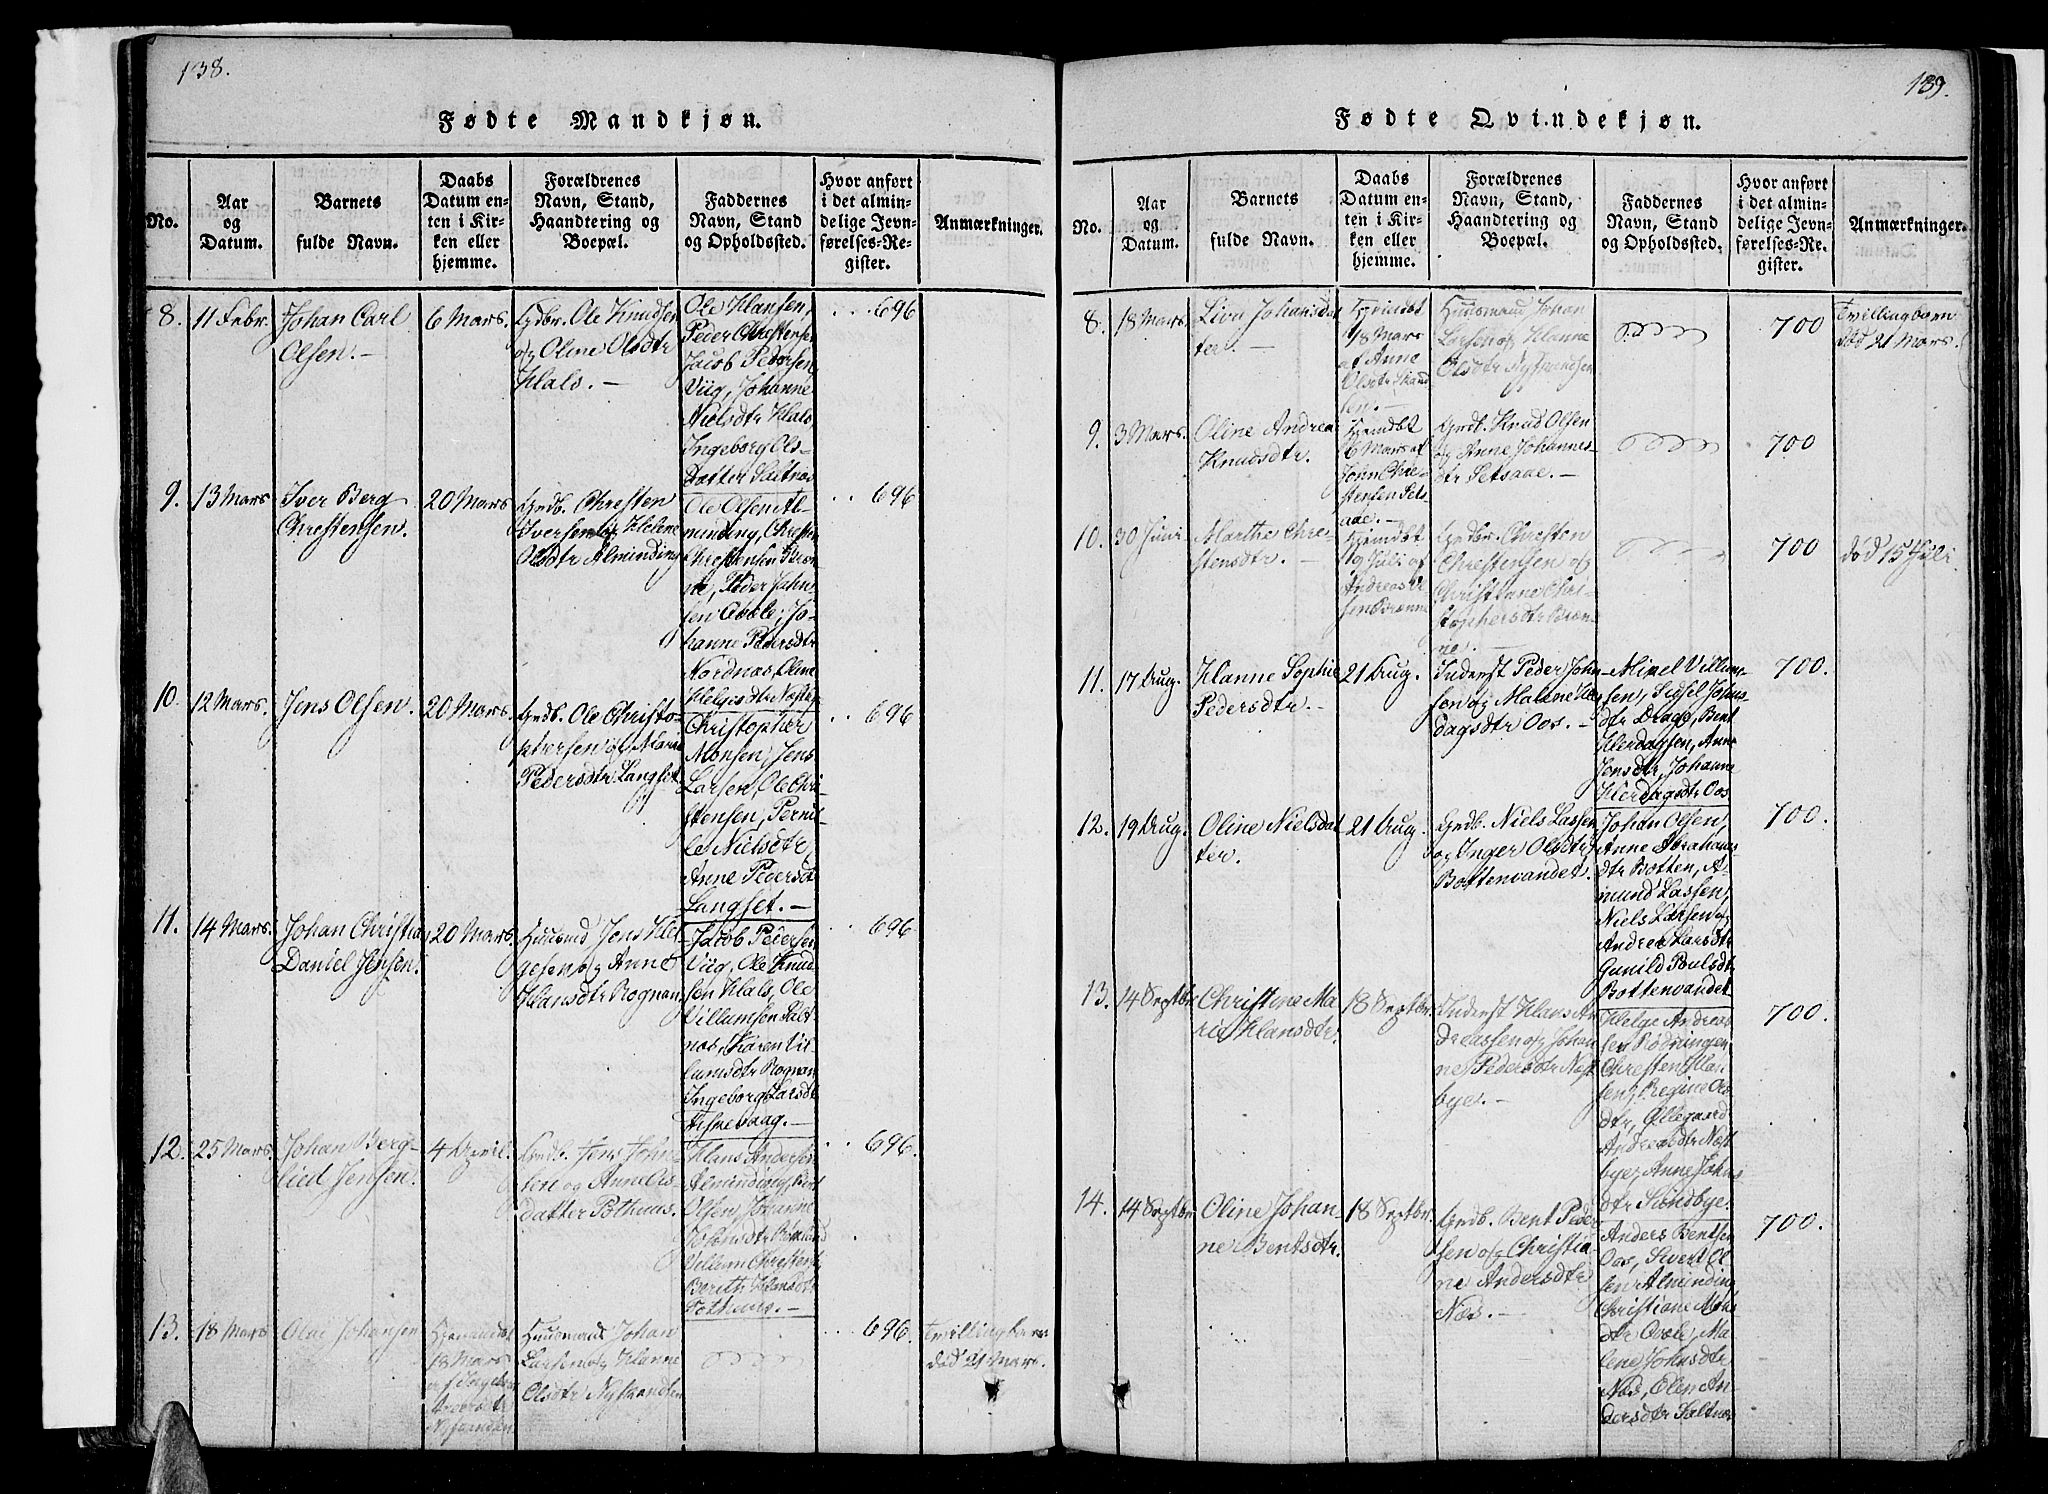 138.
Fødte Mandkjøn.
No.
Aar
og
Datum.
Barnets
fulde Navn.
Daabs
Datum en-
ten i Kir-
ken eller
hjemme.
Forældrenes
Navn, Stand,
Haandtering og
Boepæl.
Faddernes
Navn, Stand
og Opholdssted.
Hvor anført
i det almin-
delige Jevn-
førelses-Re-
gister.
Anmærkninger.
8.
11 Febr.
Johan Carl
Olsen.
6 Mars.
Gdbr. Ole Knudsen
og Oline Olsdtr
Hals.
Ole Hansen,
Peder Christensen
Jacob Pedersen
Viig, Johanne
Nielsdtr Hals,
Ingeborg Ols-
datter Saltnæs
696
9.
13 Mars
Iver Berg
Christensen.
20 Mars
Grdb. Christen
Iversen og Helene
Olsdtr Alminding
Ole Olsen Al-
munding, Christen
Christensen Bræn-
ne, Peder Jahn-
sen Evole, Jo-
hanne Pedersdtr
Nordnæs, Oline
Helgesdtr Næstby
696
10.
12 Mars.
Jens Olsen.
20 Mars.
Grdb. Ole Christo-
phersen og Maren
Pedersdtr Langset
Christopher
Monsen, Jens
Larsen, Ole Chri-
stensen, Pernil-
le Nielsdtr,
Anne Pedersdtr
Langset.
696
11.
14 Mars.
Johan Christia
Daniel Jensen.
20 Mars.
Huusmd Jens Hel-
gesen og Anne
Hansdtr Rognan.
Jacob Pedersen
Viig, Ole Knud-
sen Hals, Ole
Villumsen Salt-
næs, Karen Vil-
lumsdtr Rognan
Ingeborg Larsdtr
Fiskevaag.
696
12.
25 Mars.
Johan Berg-
lied Jensen.
4 April.
Grdb. Jens John-
sen og Anne Ols-
datter Pothuus.
Hans Andersen
Alminding, Bent
Olsen, Johanne
Johnsdtr
Villum Christens
Berith Hansdtr
Pothuus.
696
13.
18 Mars
Olai Johansen
Hjemmedøbt
18 Mars
af Ingebor
Huusmand Johan
Larsen og Hanne
Olsdtr Nystrandsen
696.
Tvillingbarn
død 21 Mars.
139.
Fødte Qvindekjøn.
No.
Aar
og
Datum.
Barnets
fulde Navn.
Daabs
Datum en-
ten i Kir-
ken eller
hjemme.
Forældrenes
Navn, Stand,
Haandtering og
Boepæl.
Faddernes
Navn, Stand
og Opholdssted.
Hvor anført
i det almin-
delige Jevn-
førelses-Re-
gister.
Anmærkninger.
8.
18 Mars.
Liva Johansdat
ter.
Hjemdøbt
18 Mars
af Anne
Olsdtr Strand
sen.
Huusmand Johan
Larsen og Hanne
Olsdtr Nystrandsen
700
Tvillingbarn
død 21 Mars.
9.
3 Mars.
Oline Andrea
Knudsdtr.
Hjemdøbt
6 Mars af
John Chri-
stensen Sets-
aae.
Grdb. Knud Olsen
og Anne Johannes-
dtr Setsaae.
700
10.
30 Juni
Marthe Chri-
stensdtr.
Hjemdøbt
9 Juli af
Andreas Ol
sen Brænne
Grdbr. Christen
Christensen og
Christiane Chri-
stophersdtr Bræn-
ne.
700
død 15 Juli
11.
17 Aug.
Hanne Sophie
Pedersdtr.
21 Aug.
Inderst Peder John-
sen og Malene Her
dagsdtr Oos.
Mikel Villum-
sen, Sidsel Johns
dtr Dragg, Bent
Herdagsen, Anne
Jensdtr, Johanne
Herdagsdtr Oos
700.
12.
19 Aug.
Oline Nielsdat
ter.
21 Aug.
Grdb. Niels Lassen
og Inger Olsdtr
Bottenvandet.
Johan Olsen,
Anne Abrahams
dtr Botten, A-
mund Lassen,
Niels Larsen og
Andrea Larsdtr
Gunild Poulsdtr
Bottenvandet
700.
13.
14 Septbr
Christine Ma-
rie Hansdtr.
18 Septbr.
Inderst Hans An
dreassen og Johan
ne Pedersdtr Næst
bye.
Helge Andreas
sen Rødningen
Christen Han
sen, Regine Ols
dtr, Ollegaard
Andreasdtr Næst
bye, Anne Johns
dtr Sundbye.
700.
14.
14 Septbr
Oline Johan-
ne Bentsdtr.
18 Septbr.
Grdb. Bent Peder
sen og Christia-
ne Andersdtr
Næs.
Anders Bentsen
Oos, Sivert Ol
sen Almindin
Christiane Mons
dtr Evole, Ma-
lene Johnsdtr
Næs, Olen An-
dersdtr Saltnæs
700.